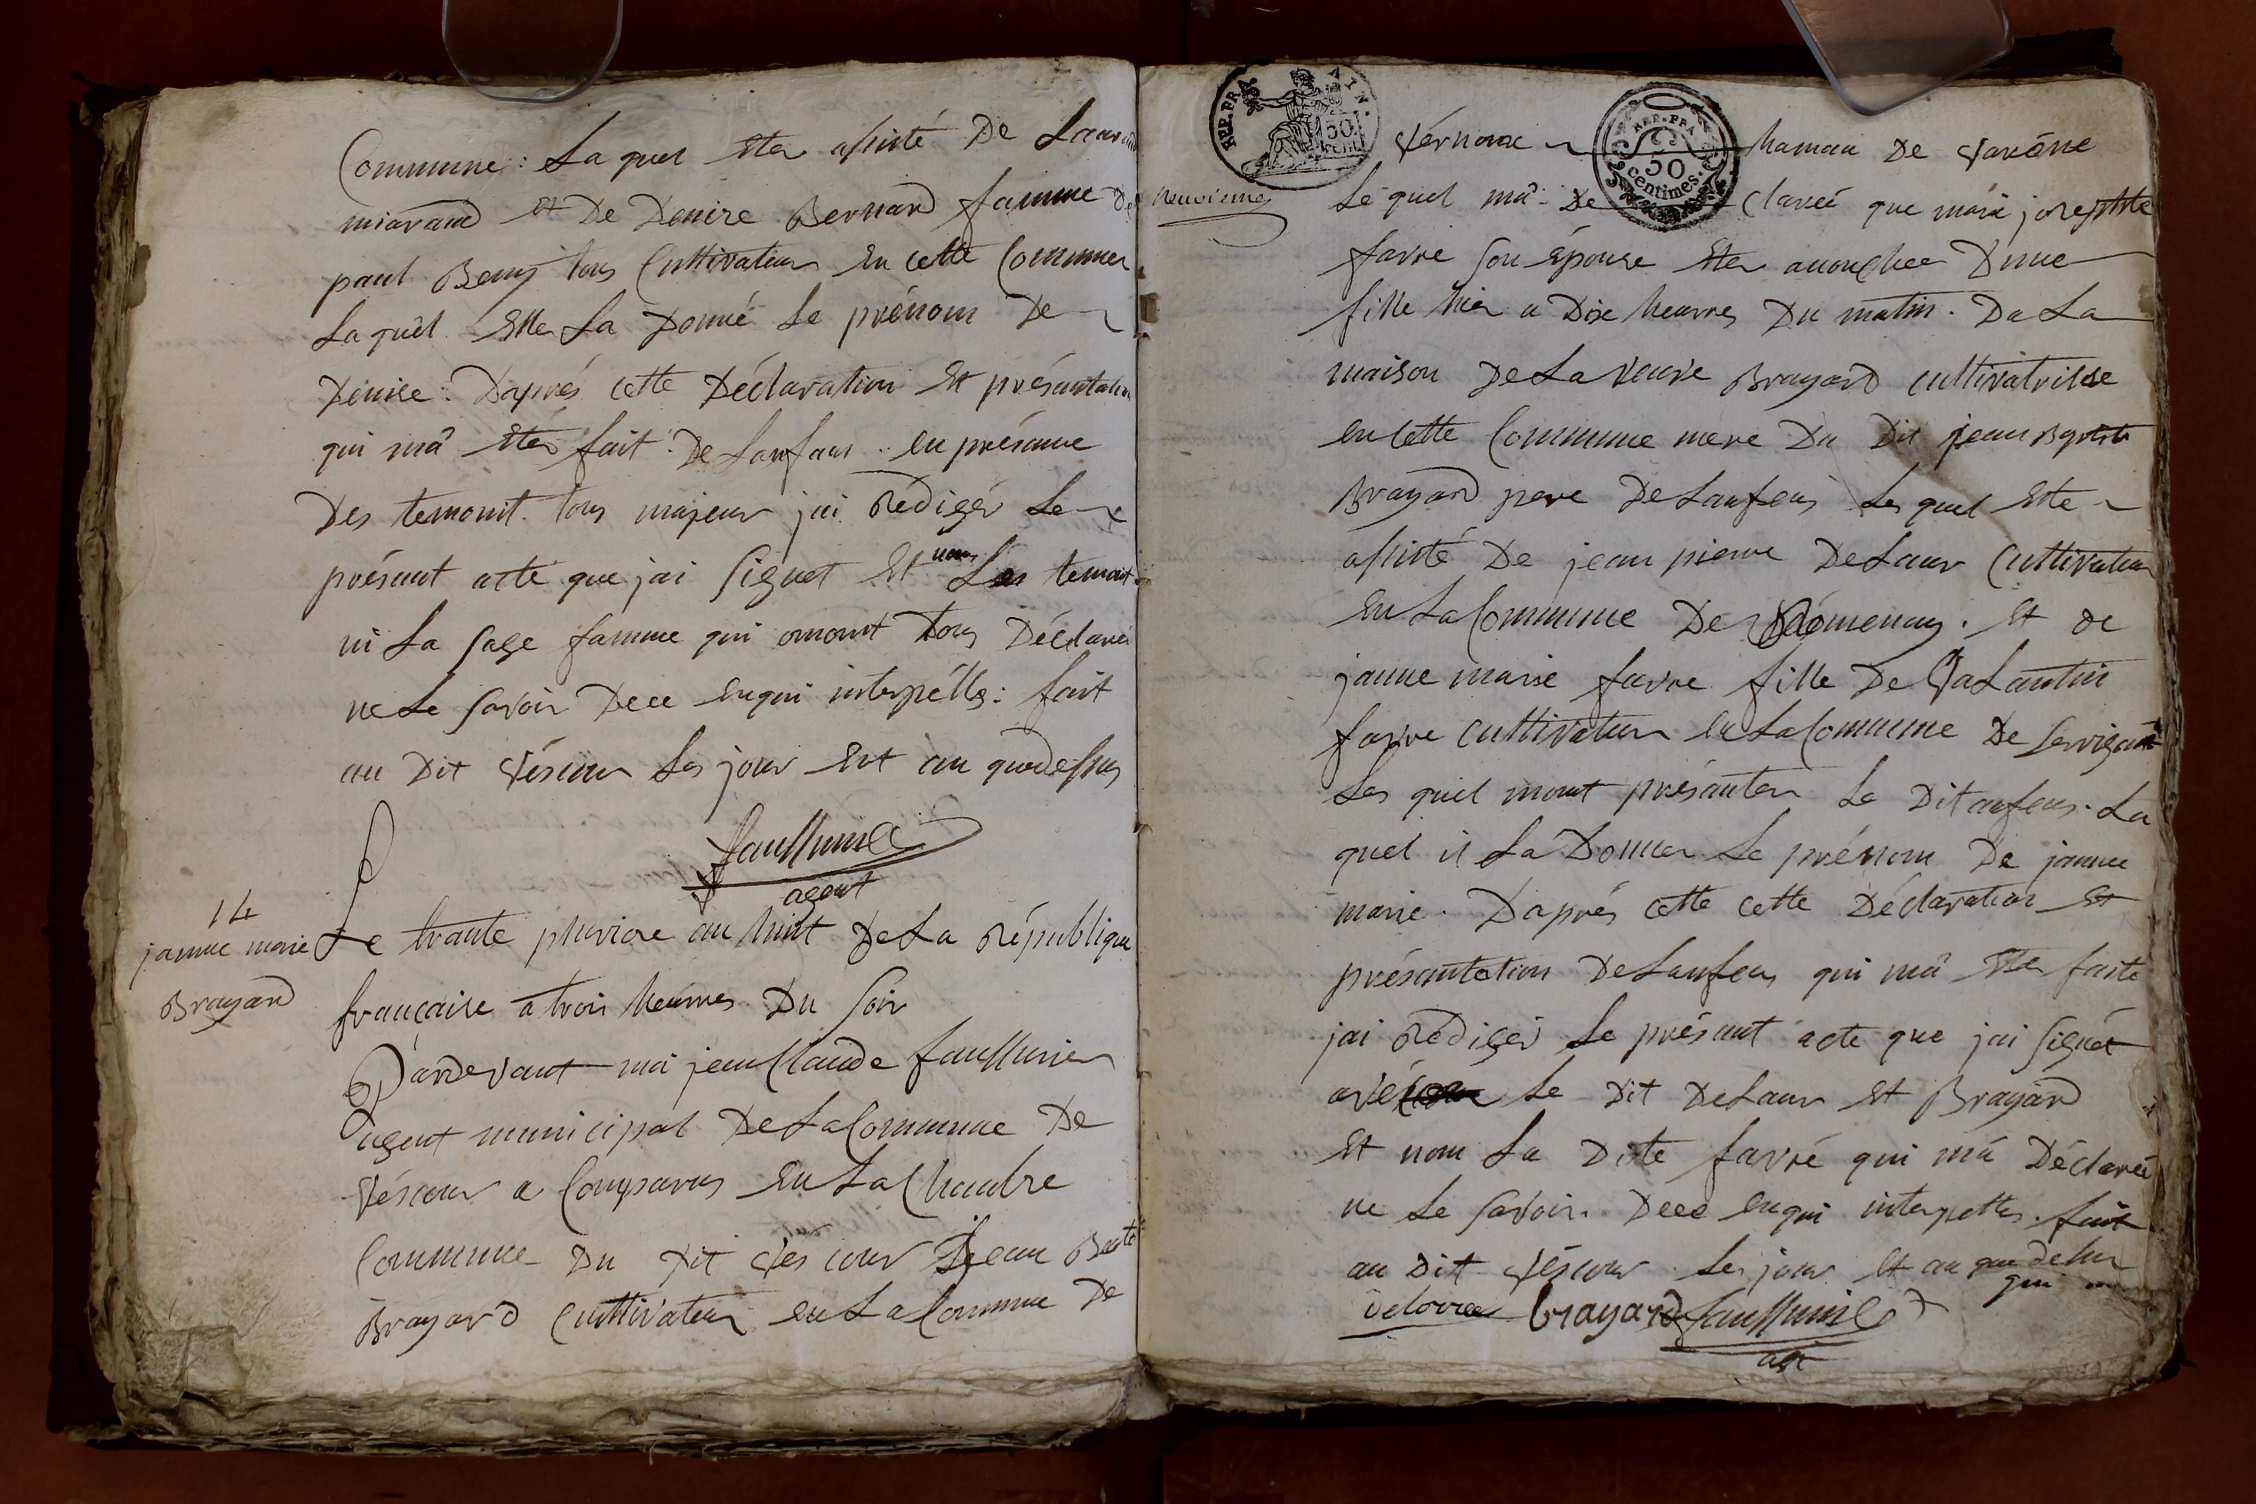 Commune : La quel Ster assisté De Laurand
miarand et De Denise Bernard famme De
paul Beny tous Cultivateur En cette Commune
La quel Elle La Donné Le prénom De
Denise : Daprés cette Déclaration Et présantation
qui ma Eter fait De Lanfans en présance
Des temouit tous majeur jai Rédigér Le
présant acte que jai Signet Et non Les temoit
ni La Sage famme qui omont tous Déclaréi
ne Le Savoir Dece enqui interpélle : fait
au Dit Véscour Les jour Et an quedessus
faussurier
agent
14
janne marie
Brayard
Le trante pluviose an huit De La République
française a trois heurres Du Soir
Pardevant moi jean Claude faussurier
agent municipal De La Commune De
Véscour a Comparus En La Chambre
Commune Du Dit Vescour Jean Bte
Brayard Cultivateur en La Commune De
REP. FRA.
AIN.
50
cent.
REP. FRA.
50
centimes.
neuvienne
Vernoux hamau De Varône
Le quel ma De claréé que marie josephte
favre Son Epouse Eter acouchee Dune
fille hier a Dix heurres Du matin. Da La
maison De La veuve Brayard cultivatrisse
en cette Commune mere Du Dit jean Baptiste
Brayard pere De Lanfens Les quel Este
assisté De jean pierre DeLaur Cultivateur
En La Commune De Romenay. Et de
janne marie favre fille De Valantin
favre cultivateur en La Commune De Servigna
Les quel mont présanter Le Dit anfens. La
quel il La Donner Le prénom De janne
marie. Daprés cette cette Déclaration Et
présantation De Lanfens qui ma Eter faite
jai Rediger Le présant acte que jai Signét
avéc Le Dit DeLaur Et Brayard
Et non La Dite favré qui ma Déclaréé
ne Le Savoir. Dece enqui interpelle. fait
au Dit Véscour Les jour Et an que Dessus
qui
delorre brayard faussurier
agt